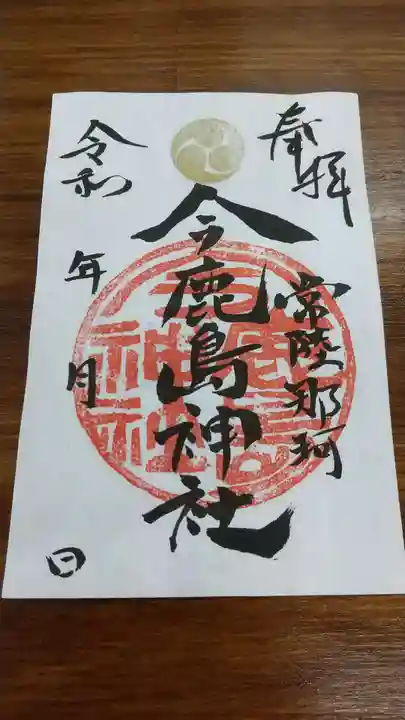 奉拝
常陸那珂
今鹿島神社
令和
年
月
日